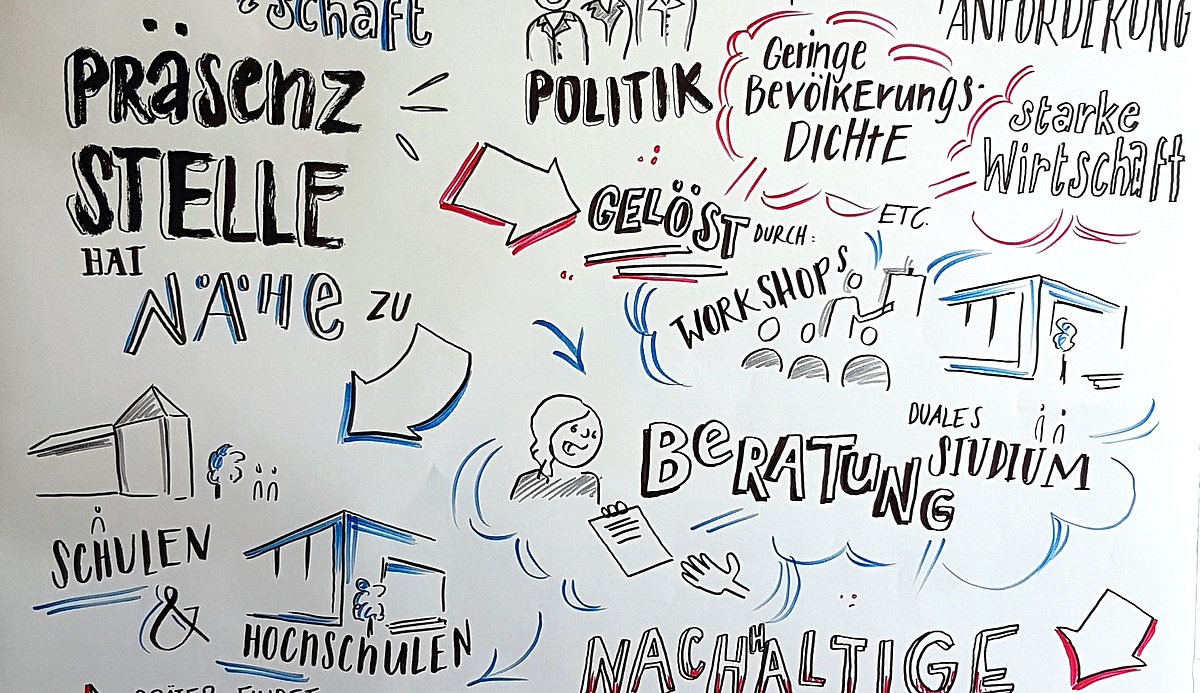 schaft
PRÄSENZ
STELLE
HAT
NÄHE ZU
SCHULEN
&
HOCHSCHULEN
POLITIK
ANFORDERUNG
Geringe
Bevölkerungs-
DICHTE
starke
Wirtschaft
ETC.
GELÖST DURCH:
WORKSHOPS
BERATUNG
DUALES
STUDIUM
NACHHALTIGE